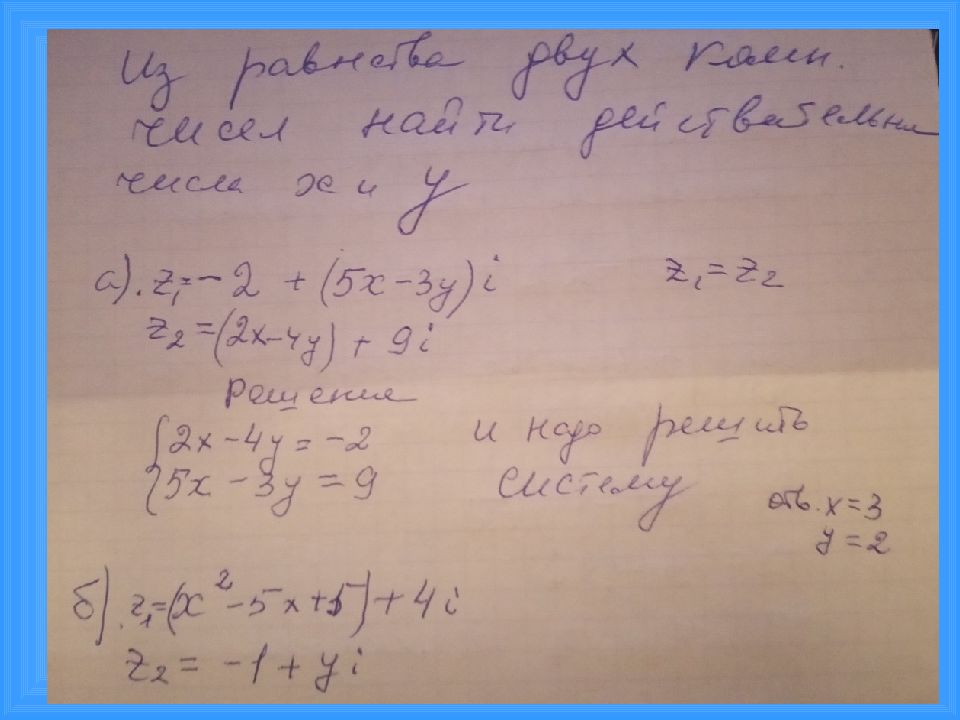 Из равенства двух компл.
чисел найти действительн
числа x и y
а). z₁ = -2 + (5x-3y)i z₁ = z₂
z₂ = (2x-4y) + 9i
Решение
{2x-4y = -2 и надо решить
{5x-3y = 9 систему
отв. x=3
y=2
б). z₁=(x²-5x+5)+4i
z₂ = -1 + yi